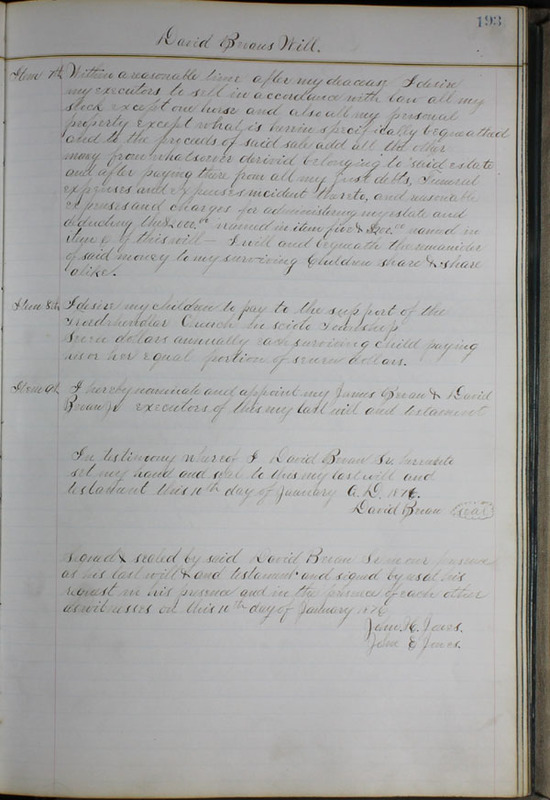 193
David Bevans Will.
Item 7th Within a reasonable time after my decease I desire
my executors to sell in accordance with law all my
stock except one horse and also all my personal
property except what is herein specifically bequeathed
and to the proceeds of said sale add all the other
money from whatsoever derived belonging to said estate
and after paying there from all my just debts, Funeral
expenses and expenses incident thereto, and reasonable
expenses and charges for administering my estate and
deducting the named in item five & named in
item 6 of this will - I will and bequeath the remainder
of said money to my surviving Children share & share
alike.
Item 8th I desire my children to pay to the support of the
Church in Scioto Township
Seven dollars annually each surviving child paying
his or her equal portion of seven dollars.
Item 9th I hereby nominate and appoint my James Bevan & David
Bevan Jr executors of this my last will and testament
In testimony whereof I David Bevan Sr. hereunto
set my hand and seal to this my last will and
testament this 10th day of January A.D. 1876.
David Bevan Seal
Signed & sealed by said David Bevan Sr in our presence
as his last will & and testament and signed by us at his
request in his presence and in the presence of each other
as witnesses on this 10th day of January 1876
John H. Jones.
John E Jones.